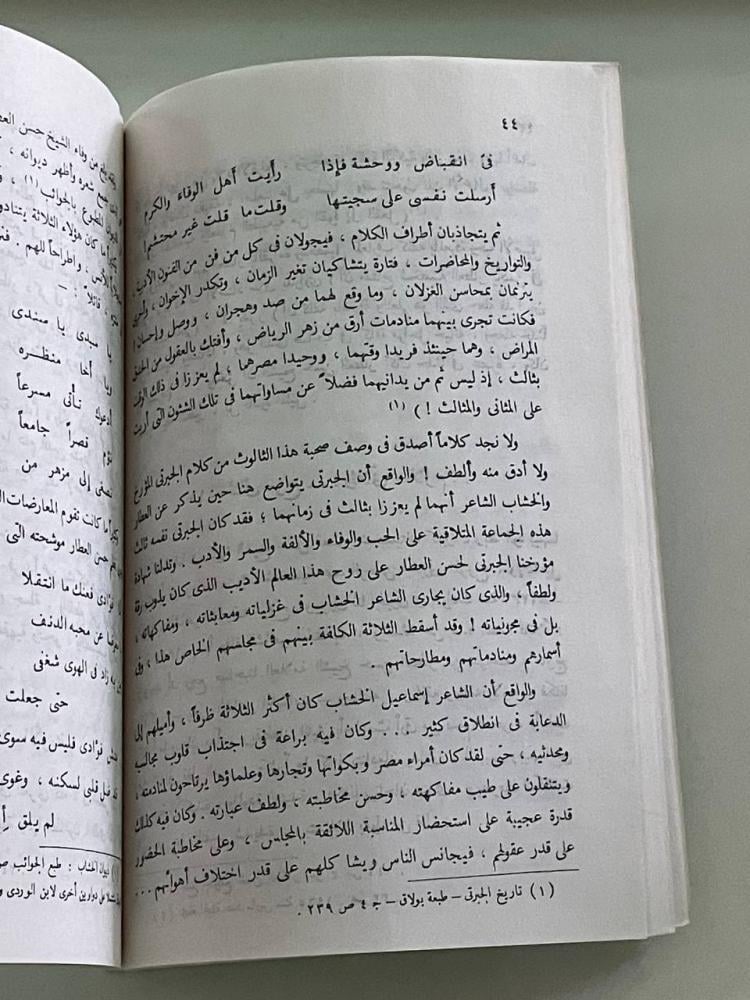 ٤٤
فىّ انقباض ووحشة فإذا رأيت أهل الوفاء والكرم
أرسلت نفسى على سجيتها وقلت ما قلت غير محتشم!
ثم يتجاذبان أطراف الكلام ، فيجولان فى كل من فن من الفنون الأدبية
والتواريخ والمحاضرات ، فتارة يتشاكيان تغير الزمان ، وتكدر الإخوان ، وأخرى
يترنمان بمحاسن الغزلان ، وما وقع لهما من صد وهجران ، ووصل وإحسان !
فكانت تجرى بينهما منادمات أرق من زهر الرياض ، وأفتك بالعقول من الحدق
المراض ، وهما حينئذ فريدا وقتهما ، ووحيدا مصرهما ، لم يعززا فى ذلك الوقت
بثالث ، إذ ليس ثم من يدانيهما فضلاً عن مساواتهما فى تلك الشئون التى أربت
على المثانى والمثالث ! ) (١)
ولا نجد كلاماً أصدق فى وصف صحبة هذا الثالوث من كلام الجبرتى المؤرخ
ولا أدق منه وألطف ! والواقع أن الجبرتى يتواضع هنا حين يذكر عن العطار
والخشاب الشاعر أنهما لم يعززا بثالث فى زمانهما ؛ فقد كان الجبرتى نفسه ثالث
هذه الجماعة المتلاقية على الحب والوفاء والألفة والسمر والأدب . وتدلنا شهادة
مؤرخنا الجبرتى لحسن العطار على روح هذا العالم الأديب الذى كان يذوب رقة
ولطفاً ، والذى كان يجارى الشاعر الخشاب فى غزلياته ومعابثاته ، ومفاكهاته ،
بل فى مجونياته ! وقد أسقط الثلاثة الكلفة بينهم فى مجالسهم الخاص هذا ، وفى
أسمارهم ومنادماتهم ومطارحاتهم .
والواقع أن الشاعر إسماعيل الخشاب كان أكثر الثلاثة ظرفاً ، وأميلهم إلى
الدعابة فى انطلاق كثير ... وكان فيه براعة فى اجتذاب قلوب مجالسيه
ومحدثيه ، حتى لقد كان أمراء مصر وبكواتها وتجارها وعلماؤها يرتاحون لمنادمته ،
ويتنقلون على طيب مفاكهته ، وحسن مخاطبته ، ولطف عبارته . وكان فيه كذلك
قدرة عجيبة على استحضار المناسبة اللائقة بالمجلس ، وعلى مخاطبة الحضور
على قدر عقولهم ، فيجانس الناس ويشاكلهم على قدر اختلاف أهوائهم ...
(١) تاريخ الجبرتى – طبعة بولاق – ج ٤ ص ٢٣٩ .